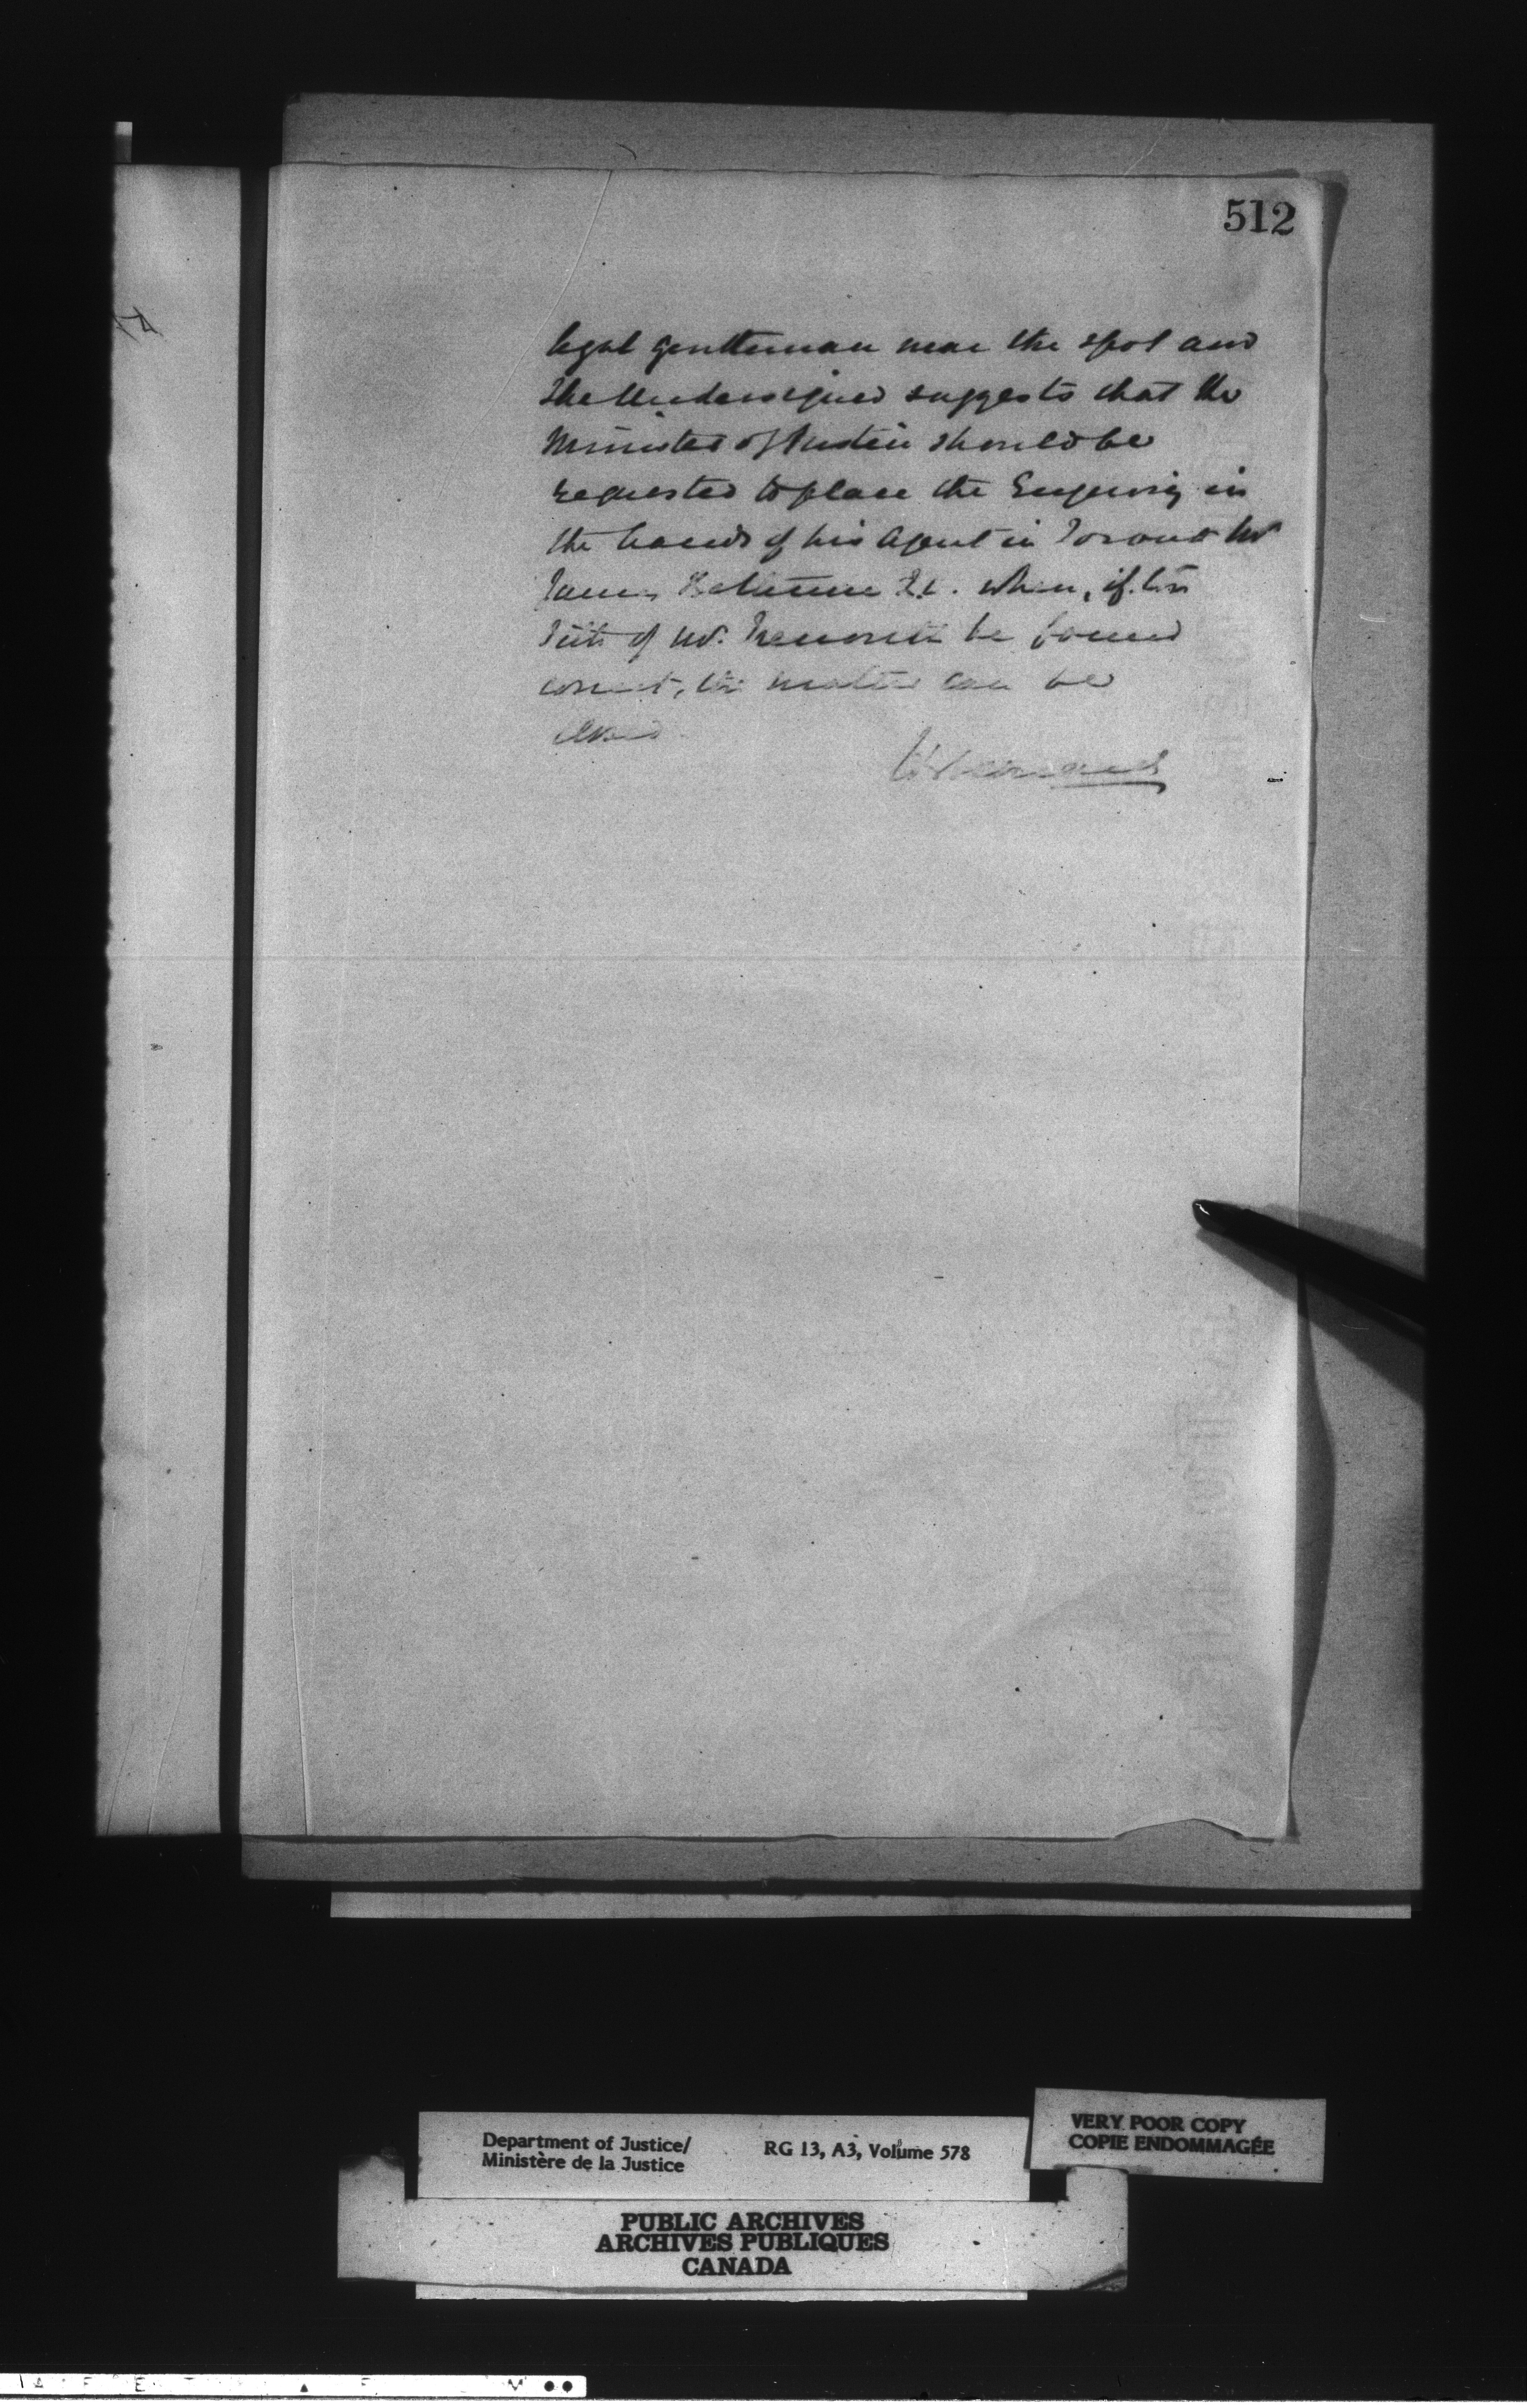 512
legal gentleman near the spot and
the Undersigned suggests that the
Minister of Justice should be
requested to place the Enquiry in
the hands of his Agent in Toronto Mr
James Bethune Q.C. when, if the
title of Mr. be found
correct, the matter can be
closed
H Bernard
Department of Justice/
Ministère de la Justice
RG 13, A3, Volume 578
VERY POOR COPY
COPIE ENDOMMAGÉE
PUBLIC ARCHIVES
ARCHIVES PUBLIQUES
CANADA